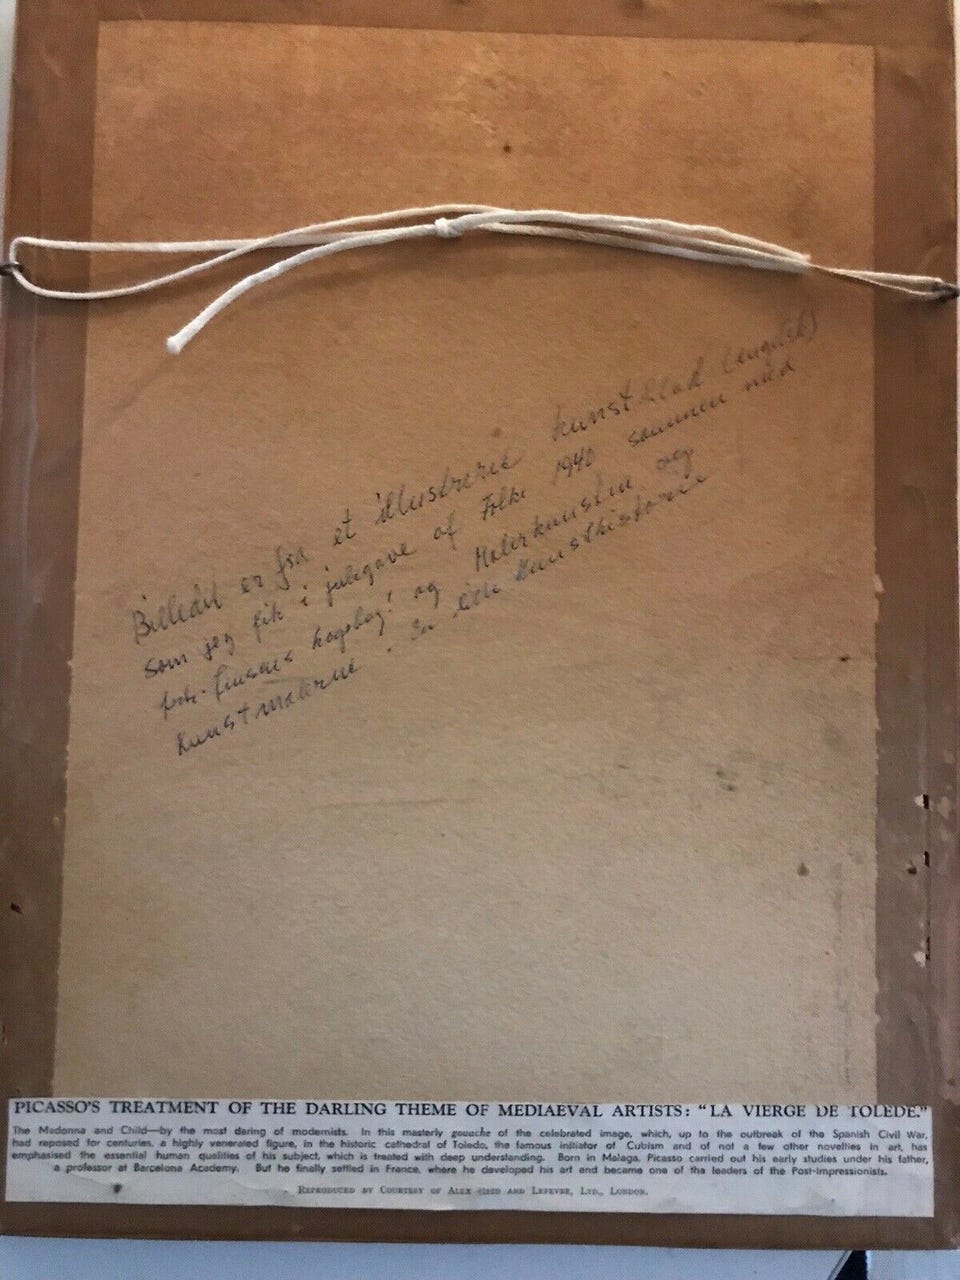 Billedet er fra et illustreret kunstblad (engelsk)
som jeg fik i julegave af Folke 1940 sammen med
kogebog! og Malerkunsten og
Kunstmalerne. En lille Kunsthistorie
PICASSO'S TREATMENT OF THE DARLING THEME OF MEDIAEVAL ARTISTS: "LA VIERGE DE TOLEDE."
The Madonna and Child—by the most daring of modernists. In this masterly gouache of the celebrated image, which, up to the outbreak of the Spanish Civil War,
had reposed for centuries, a highly venerated figure, in the historic cathedral of Toledo, the famous initiator of Cubism and of not a few other novelties in art, has
emphasised the essential human qualities of his subject, which is treated with deep understanding. Born in Malaga, Picasso carried out his early studies under his father,
a professor at Barcelona Academy. But he finally settled in France, where he developed his art and became one of the leaders of the Post-Impressionists.
REPRODUCED BY COURTESY OF ALEX REID AND LEFEVRE, LTD., LONDON.